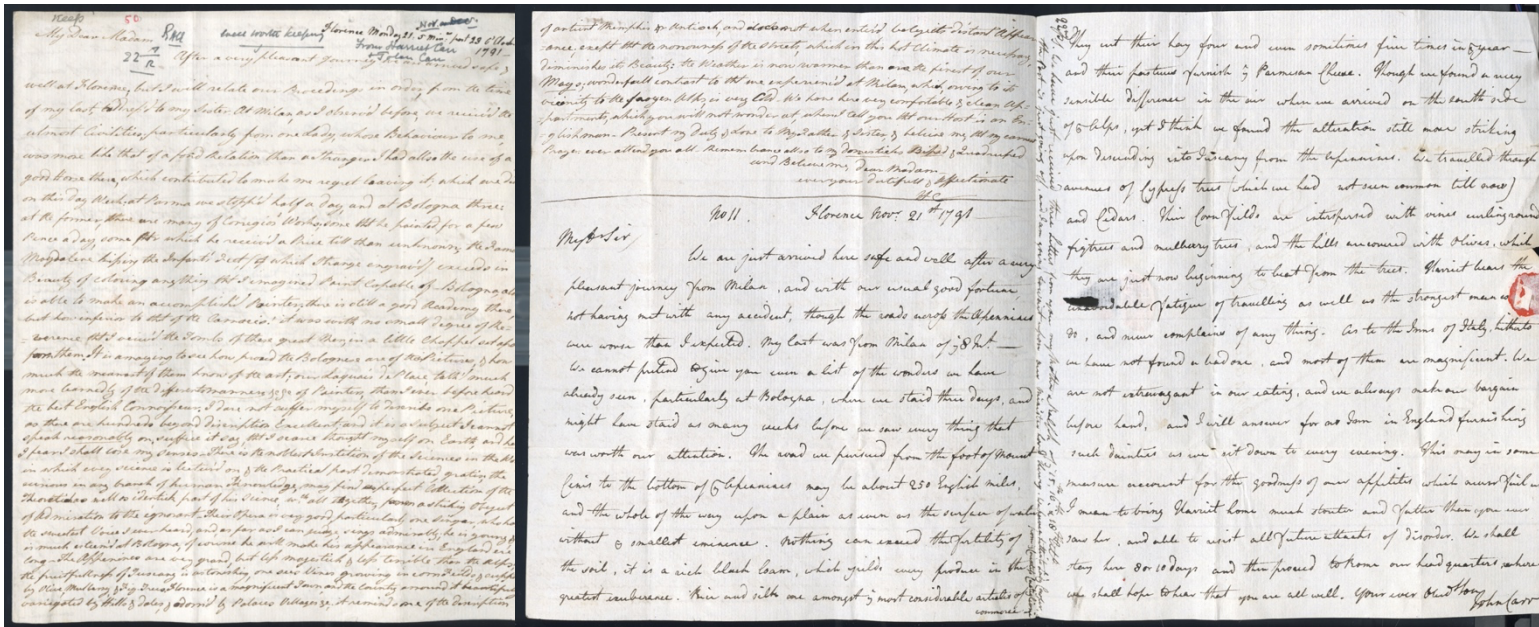 Keep 50
My Dear Madam
most worth keeping
Florence Monday 21. 5 Min.s past 23 o'Clock
November
1791
From Harriet Carr
John Carr
22
After a very pleasant Journey we arrived safe &
well at Florence, but I will relate our Proceedings in order, from the time
of my last, address'd to my Sister. At Milan, as I observ'd before, we receiv'd the
utmost Civilities, particularly from one Lady, whose Behaviour to me,
was more like that of a fond Relation than a Stranger. I had also the use of a
good House there, which contributed to make me regret leaving it, which we did
on this day Week, at Parma we stopp'd half a day, and at Bologna three.
at the former, there are many of Corregio's Works, some that he painted for a few
Pence a day, some for which he receiv'd a Price till then unknown; the famous
Magdalene kissing the Infant's Feet (of which I have engraving) exceeds in
Beauty of coloring anything that I imagined Paint capable of. Bologna also
is able to make an accomplish'd Painter, there is still a good Academy there,
but how inferior to that of the Carracis! it was with no small degree of Re-
-verence that I view'd the Tombs of these great Men, in a little Chappel set apart
for them. It is amazing to see how proud the Bolognese are of their Pictures, & how
much the meanest of them know of the art; our Laquais de Place talk'd much
more learnedly of the different manners &c &c of Painting than I ever before heard
the best English Connoisseur; I dare not suffer myself to describe one Picture,
as there are hundreds beyond Discription Excellent, and it is a subject I cannot
speak reasonably on, suffice it say that I scarce thought myself on Earth and here
I fear I shall lose my senses. There is the noblest Institution of the Sciences in the World
in which every science is lectur'd on, & the Practical part demonstrated gratis, the
curious in any branch of human Knowledge, may find a perfect Collection of the
Theoretical as well as identick part of his Science, all together form a striking Object
of Admiration to the ignorant. Their Opera is very good, particularly one singer, who has
the sweetest Voice I ever heard, and as far as I can judge, sings admirably, he is young &
is much esteem'd at Bologna, of course he will make his appearance in England ere
long. The Appenines are very grand, but less magestick & less terrible than the Alps,
the fruitfulness of Tuscany is astonishing, one sees Vines growing in cornfields, & supported
by Olive Mulberry & Fig Trees. Florence is a magnificent Town, and the Country around it beautifully
variegated by Hills & dales, & adorn'd by Palaces Villages &c, it reminds one of the description
of antient Memphis & Antioch, and does not when enter'd belye its distant Appear-
-ance, except that the narrowness of the streets, which in this hot Climate is necessary,
diminishes its Beauty; the Weather is now warmer than are the finest of our
Mays, a wonderfull contrast to that we experienc'd at Milan, which owing to its
vicinity to the frozen Alps, is very Cold. We have here very comfortable & clean Ap-
-partments, which you will not wonder at when I tell you that our Host is an En-
-glishman. Present my Duty & Love to My Father & Sister, & believe me, that my earnest
Prayer ever attend you all. Remembrance also to my Domesticks Biped & Quadruped
and Believe me, Dear Madam
ever your dutifull & affectionate
HC
No 11. Florence Nov.r 21st 1791
My dr Sir,
We are just arrived here safe and well after a very
pleasant journey from Milan, and with our usual good fortune,
not having met with any accident, though the roads across the Apennines
were worse than I expected. My last was from Milan of ye 8 Inst —
We cannot pretend to give you even a list of the wonders we have
already seen, particularly at Bologna, where we staid three days, and
might have staid as many weeks before we saw every thing that
was worth our attention. The road we pursued from the foot of Mount
Cenis to the bottom of ye Apennines may be about 250 English miles,
and the whole of the way upon a plain as even as the surface of water
without ye smallest eminence. Nothing can exceed the fertility of
the soil, it is a rich black loam, which yields every produce in the
greatest exuberance. Rice and silk are amongst ye most considerable articles of
commerce —
They cut their hay four and even sometimes five times in ye year —
and their pastures furnish ye Parmesan Cheese. Though we found a very
sensible difference in the air when we arrived on the south side
of ye Alps, yet I think we found the alteration still more striking
upon descending into Tuscany from the Apennines. We travelled through
avenues of Cypress trees (which we had not seen common till now)
and Cedars. Their Corn fields are interspersed with vines curling round
figtrees and mulberry trees, and the hills are covered with Olives, which
they are just now beginning to beat from the trees. Harriet bears the
unavoidable fatigue of travelling as well as the strongest man could
do, and never complains of any thing. As to the Inns of Italy, hitherto
we have not found a bad one, and most of them are magnificent. We
are not extravagant in our eating, and we always make our bargain
before hand, and I will answer for no Inn in England furnishing
such dainties as we sit down to every evening. This may in some
measure account for the goodness of our appetites which never fail us
I mean to bring Harriet home much stouter and fatter than you ever
saw her, and able to resist all future attacks of disorder. We shall
stay here 8 or 10 days and then proceed to Rome our head quarters, where
we shall hope to hear that you are all well. Your ever Obedt Son
John Carr
We have just received three letters from my brother & Ralph of
the Post is just going off and I am going